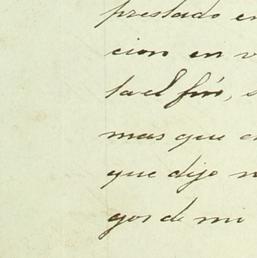 prestado en
cion en v
ta el fin, s
mas que e
que dijo n
gos de mi